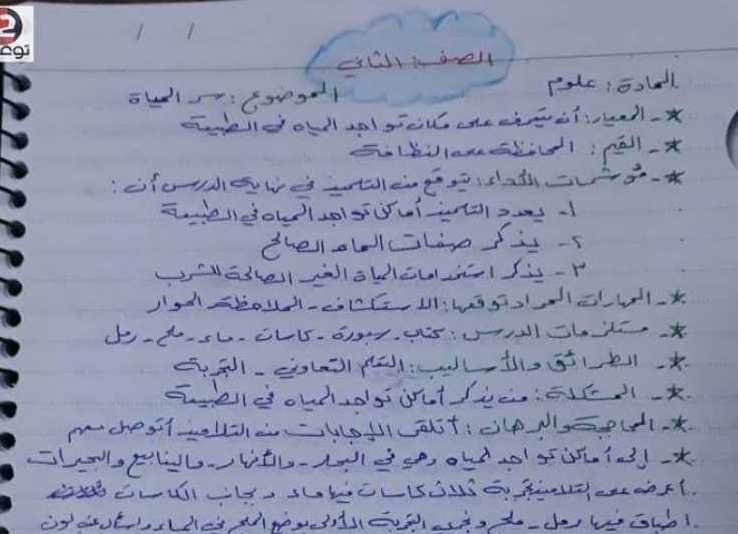 توع
/ /
الصف: الثاني
المادة: علوم الموضوع: سر الحياة
*- المعيار: أن يتعرف على مكان تواجد المياه في الطبيعة
*- القيم: المحافظة على النظافة
*- مؤشرات الأداء: يتوقع من التلميذ في نهاية الدرس أن:
١- يعدد التلميذ أماكن تواجد المياه في الطبيعة
٢- يذكر صفات الماء الصالح
٣- يذكر استخدامات المياة الغير الصالحة للشرب
*- المهارات المراد توقعها: الاستكشاف - الملاحظة الحوار
*- مستلزمات الدرس: كتاب - سبورة - كاسات - ماء - ملح - رمل
*- الطرائق والأساليب: التعلم التعاوني - التجربة
*- المشكلة: من يذكر أماكن تواجد المياه في الطبيعة
*- المحاججة والبرهان: أتلقى الإجابات من التلاميذ أتوصل معهم
*- إلى أماكن تواجد المياه وهي في البحار - والأنهار - والينابيع والبحيرات
. أعرض على التلاميذ تجربة ثلاث كاسات فيها ماء وبجانب الكاسات
. أطباق فيها رمل - ملح ونجري التجربة الأولى بوضع الملح في الماء واسأل عن لون